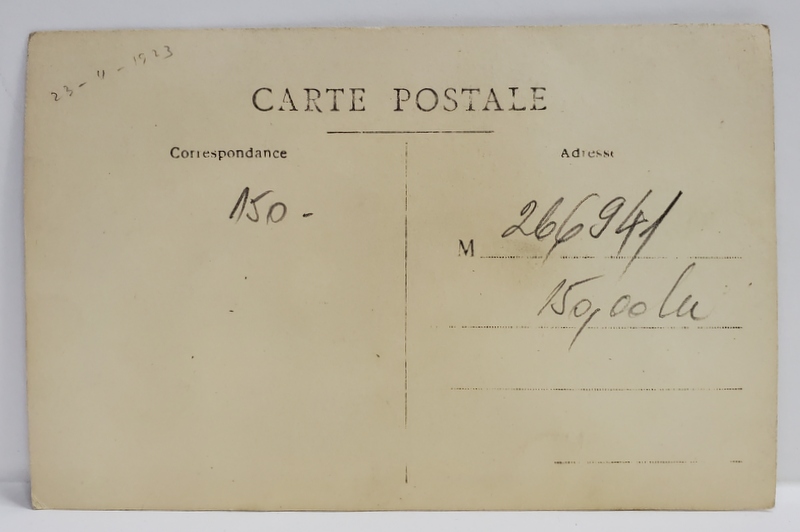 23-4-1923
CARTE POSTALE
Correspondance
Adresse
150-
M 266941
150,00 lei